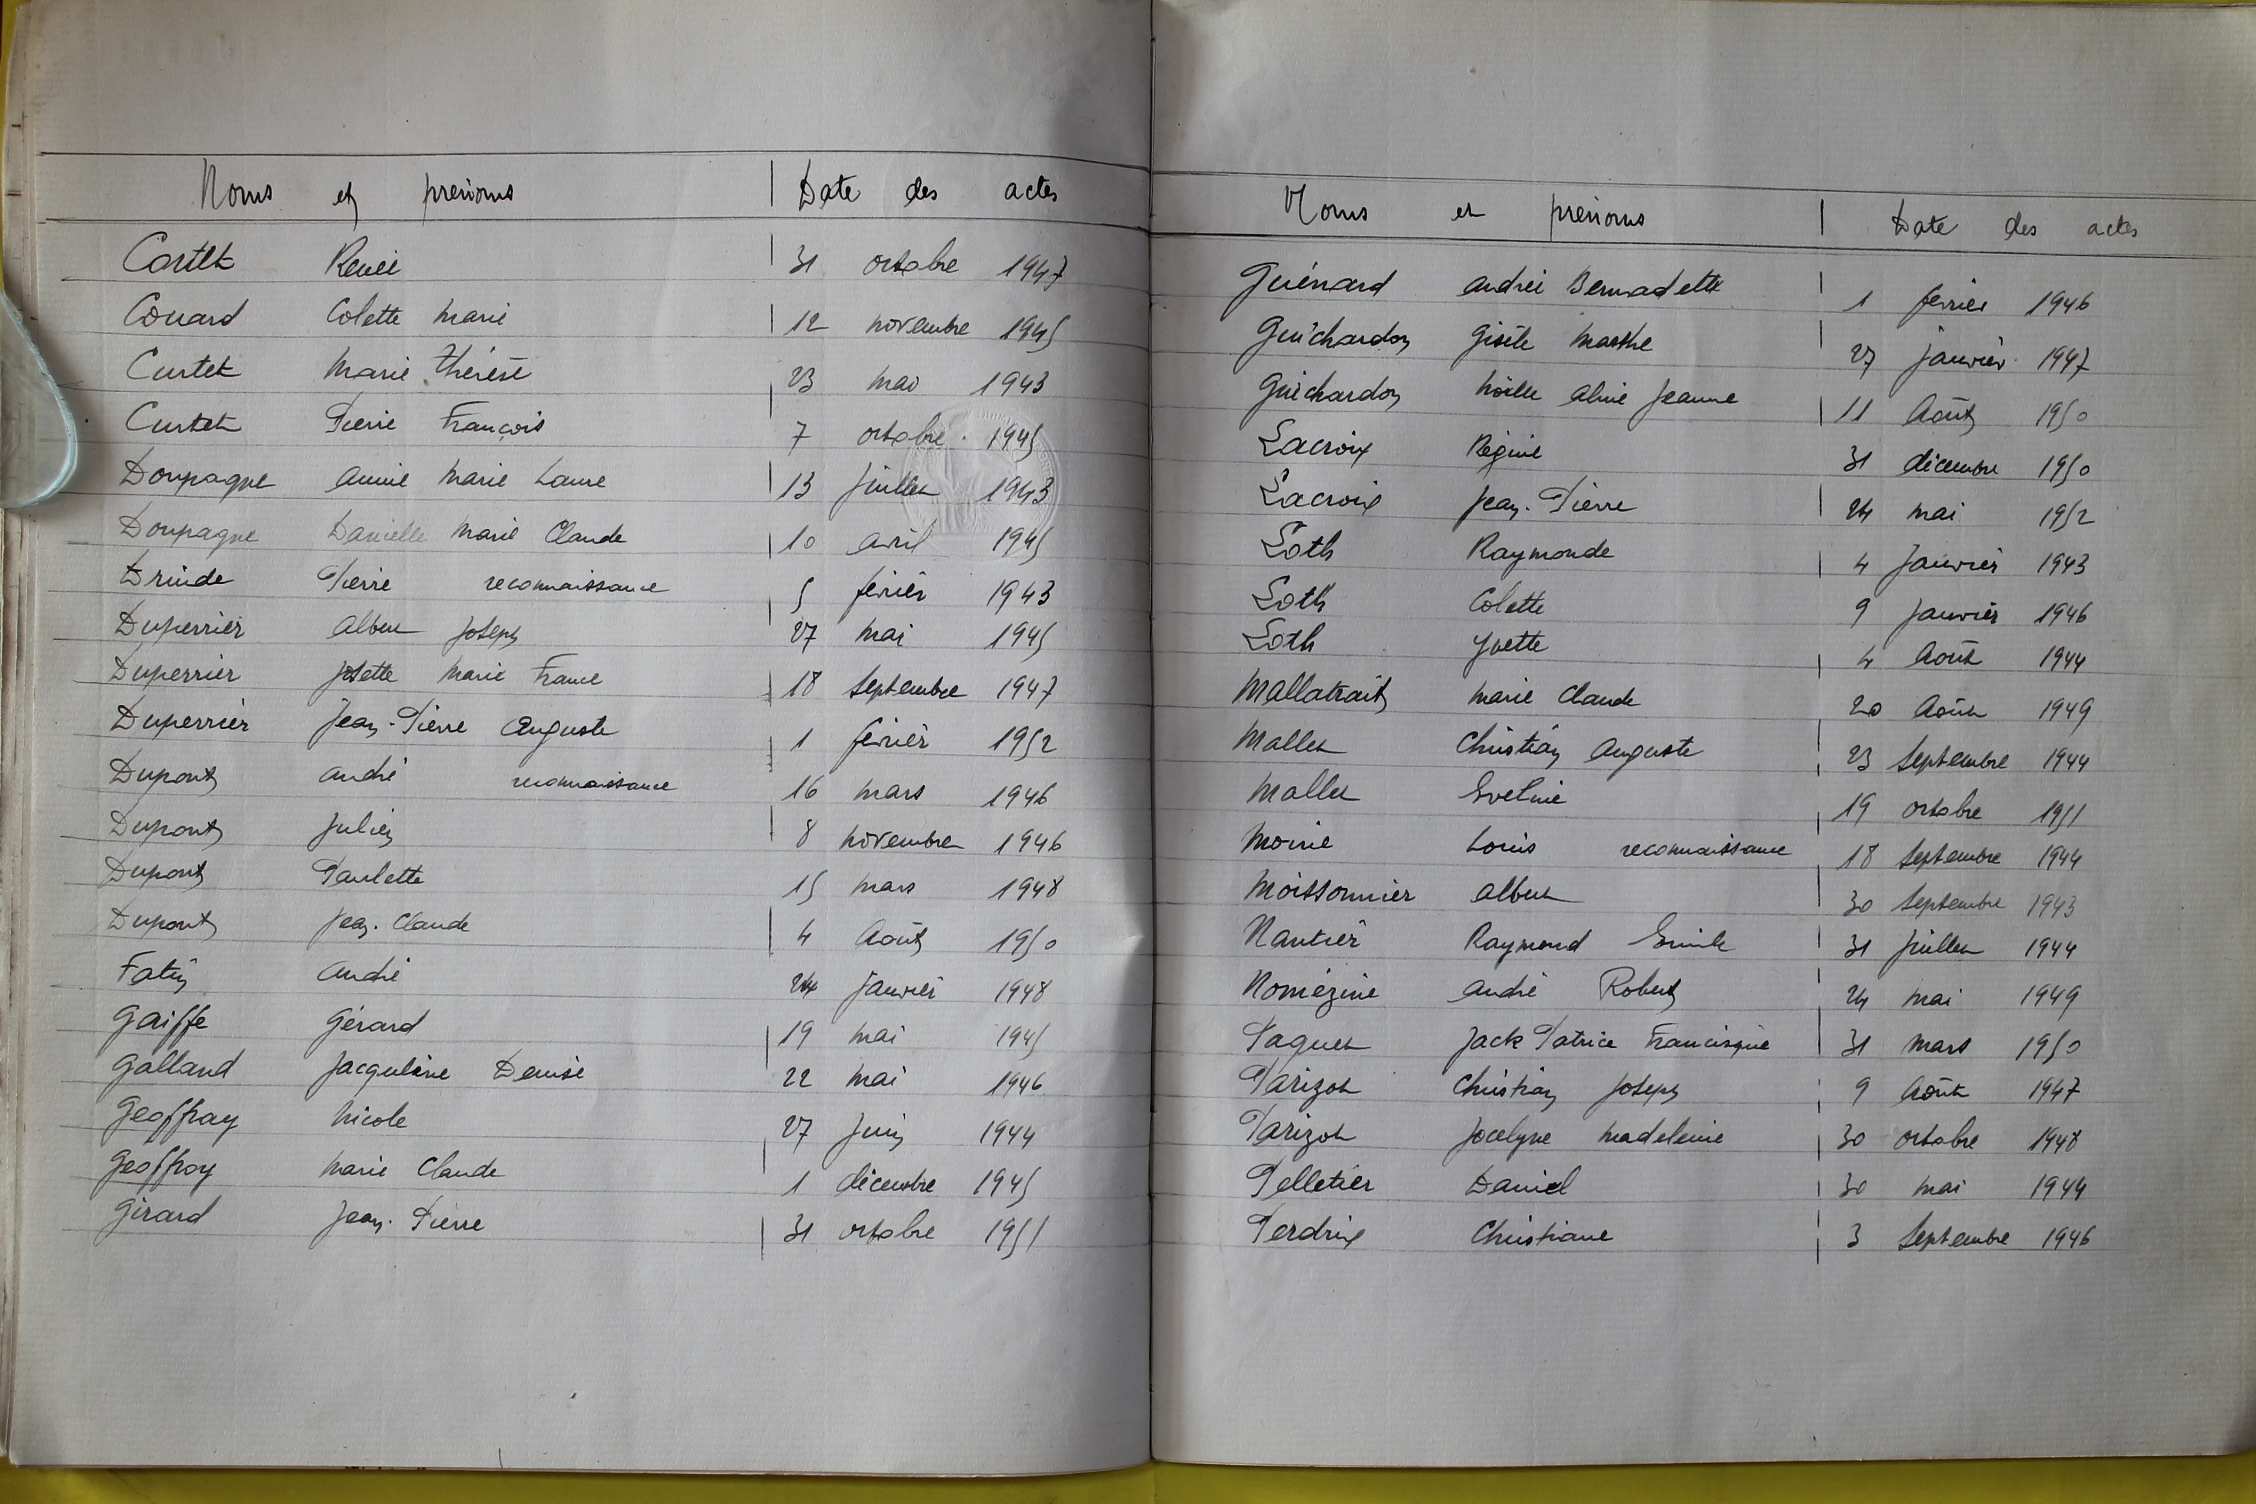 Noms et prénoms | Date des actes
Cartet Renée | 31 octobre 1947
Couard Colette Marie | 12 novembre 1945
Curtet Marie Thérèse | 23 mai 1943
Curtet Pierre François | 7 octobre 1945
Doupagne Annie Marie Laure | 13 juillet 1943
Doupagne Danielle Marie Claude | 10 avril 1945
Drinde Pierre reconnaissance | 5 février 1943
Duperrier Albert Joseph | 27 mai 1945
Duperrier Josette Marie France | 18 septembre 1947
Duperrier Jean-Pierre Auguste | 1 février 1952
Dupont André reconnaissance | 16 mars 1946
Dupont Julien | 8 novembre 1946
Dupont Paulette | 15 mars 1948
Dupont Jean-Claude | 4 Août 1950
Fatin André | 24 janvier 1948
Gaiffe Gérard | 19 mai 1945
Galland Jacqueline Denise | 22 mai 1946
Geoffray Nicole | 27 juin 1944
Geoffroy Marie Claude | 1 décembre 1945
Girard Jean-Pierre | 31 octobre 1951
Noms et prénoms | Date des actes
Guénard Andrée Bernadette | 1 février 1946
Guichardon Gisèle Marthe | 27 janvier 1947
Guichardon Noëlle Aline Jeanne | 11 Août 1950
Lacroix Régine | 31 décembre 1950
Lacroix Jean-Pierre | 24 mai 1952
Loth Raymonde | 4 Janvier 1943
Loth Colette | 9 janvier 1946
Loth Yvette | 4 Août 1944
Mallatrait Marie Claude | 20 Août 1949
Mallet Christian Auguste | 23 septembre 1944
Mallet Eveline | 19 octobre 1951
Moine Louis reconnaissance | 18 septembre 1944
Moissonnier Albert | 30 septembre 1943
Nantier Raymond Emile | 31 juillet 1944
Nomézine André Robert | 24 mai 1949
Paquet Jack Patrice Francisque | 31 mars 1950
Parizot Christian Joseph | 9 Août 1947
Parizot Jocelyne Madeleine | 30 octobre 1948
Pelletier Daniel | 30 mai 1944
Perdrix Christiane | 3 septembre 1946